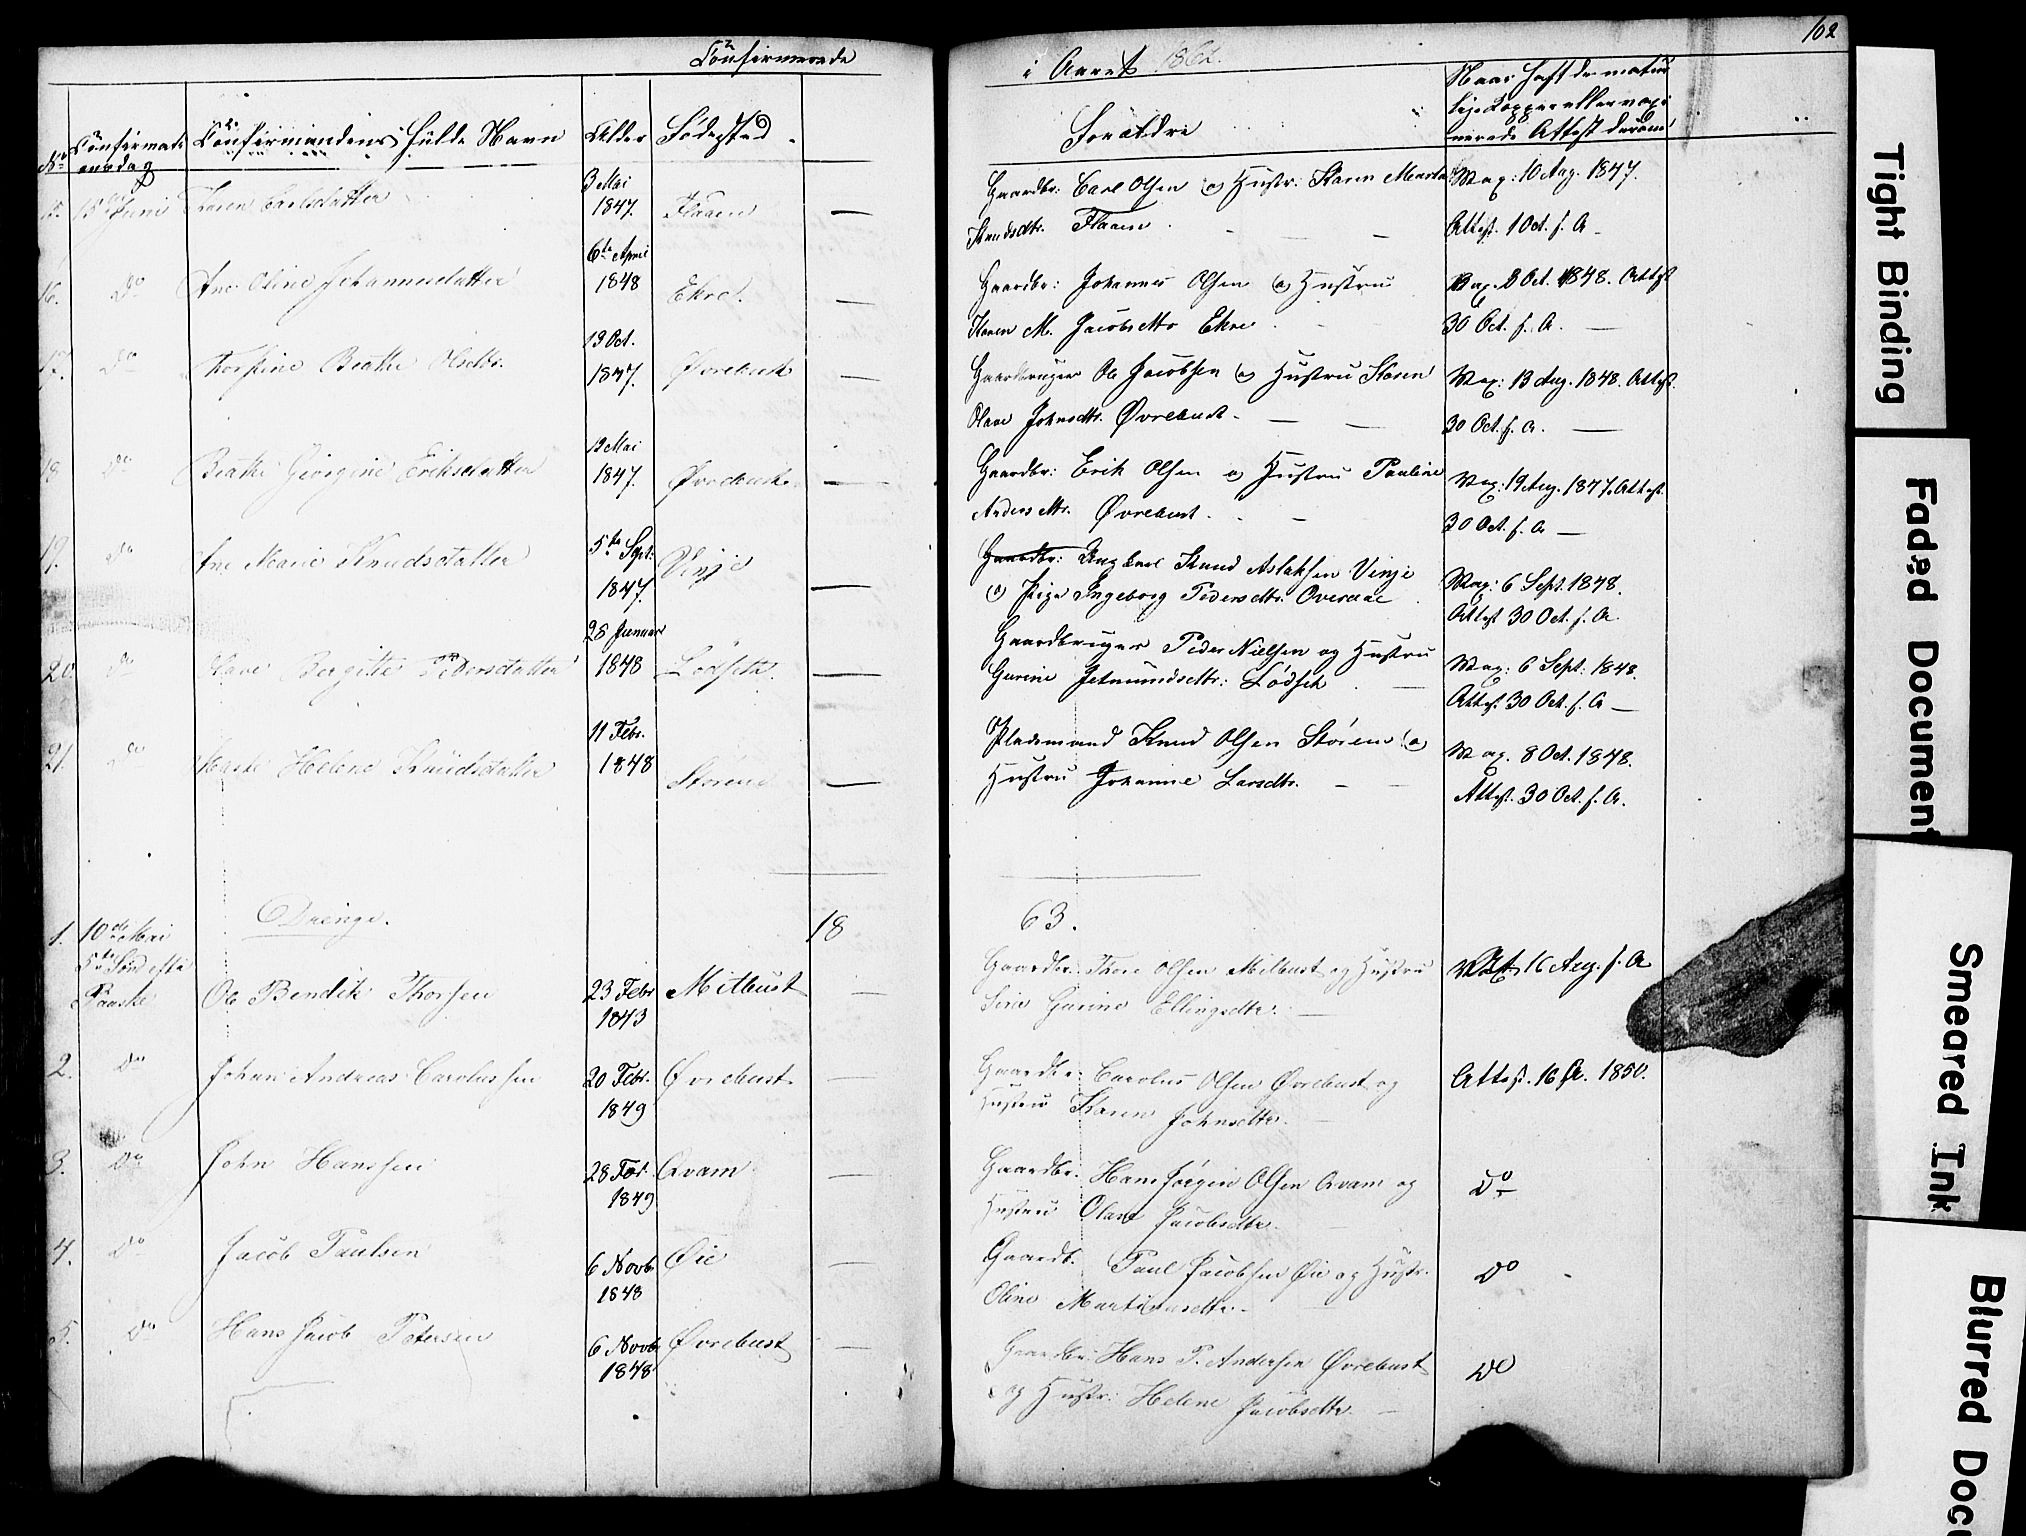 Confirmerede
i Aaret 1862.
102
No
Confirmationsdag
Confirmandens fulde Navn
Alder
Fødested
Forældre
Naar haft de naturlige Kopper eller vaxinerede Attest derom
15. 15de Juni Karen Carlsdatter
3 Mai
1847.
Flaaen
Gaardbr: Carl Olsen og Hustr: Karen Marta
Knudsdtr. Flaaen
Vax: 10 Aug. 1847.
Attest. 1 Oct. s. A
16. Do Ane Oline Johannesdatter
6te April
1848
Ekre
Gaardbr: Johannes Olsen og Hustru
Karen M. Jacobsdtr Ekre
Vax. 3 Oct. 1848. Attest
30 Oct. s. A.
17. Do Beathe Olsdtr.
19 Oct.
1847.
Øvrebust
Gaardbruger Ole Jacobsen og Hustru Karen
Olave Johnsdtr. Øvrebust
Vax: 13 Aug. 1848. Attest
30 Oct. s. A.
18 Do Beathe Georgine Eriksdatter
19 Mai
1847.
Øvrebust
Gaardbr: Erik Olsen og Hustru Pauline
Andersdtr. Øvrebust
Vax: 19 Aug. 1847. Attest.
30 Oct. s. A
19. Do Ane Marie Knudsdatter
5te Sept:
1847.
Vinje
Gaardbr: Ungkarl Knud Aslaksen Vinje
og Pige Ingeborg Pedersdtr. Overaae
Vax: 6 Sept. 1848.
Attest 30 Oct. s. A.
20. Do Olave Bergitte Pedersdatter
28 Januar
1848
Lødseth
Gaardbruger Peder Nielsen og Hustru
Gurine Jetmundsdtr: Lødseth
Vax: 6 Sept. 1848.
Attest 30 Oct. s. A
21. Do Helene Knudsdatter
11 Febr.
1848
Storene
Pladsmand Knud Olsen Størene og
Hustru Johanne Larsdtr.
Vax. 8 Oct. 1848.
Attest. 30 Oct. s. A.
Drenge.
18
63.
1. 10de Mai
5te Sønd efter
Paaske
Ole Bendik Thorsen
23 Febr
1843
Mitbust
Gaardbr. Thore Olsen Mitbust og Hustru
Sirie Gurine Ellingsdtr.
16 Aug. s. A
2. Do Johan Andreas Carolussen
20 Febr.
1849
Øvrebust
Gaardbr. Carolus Olsen Øvrebust og
Hustru Karen Johnsdtr.
Attest. 16 1850.
3. Do John Hanssen
28 Febr.
1849
Qvam
Gaardbr. Hans Jørgen Olsen Qvam og
Hustru Olave Jacobsdtr.
Do
4. Do Jacob Paulsen
6 Novb.
1848
Øie
Gaardb. Paul Jacobsen Øie og Hustr.
Oline Martinusdtr.
Do
5. Do Hans Jacob Petersen
6 Novb.
1848
Øvrebust
Gaardbr: Hans P. Andersen Øvrebust
og Hustr: Helene Jacobsdtr.
Do
Tight Binding
Faded Document
Smeared Ink
Blurred Doc